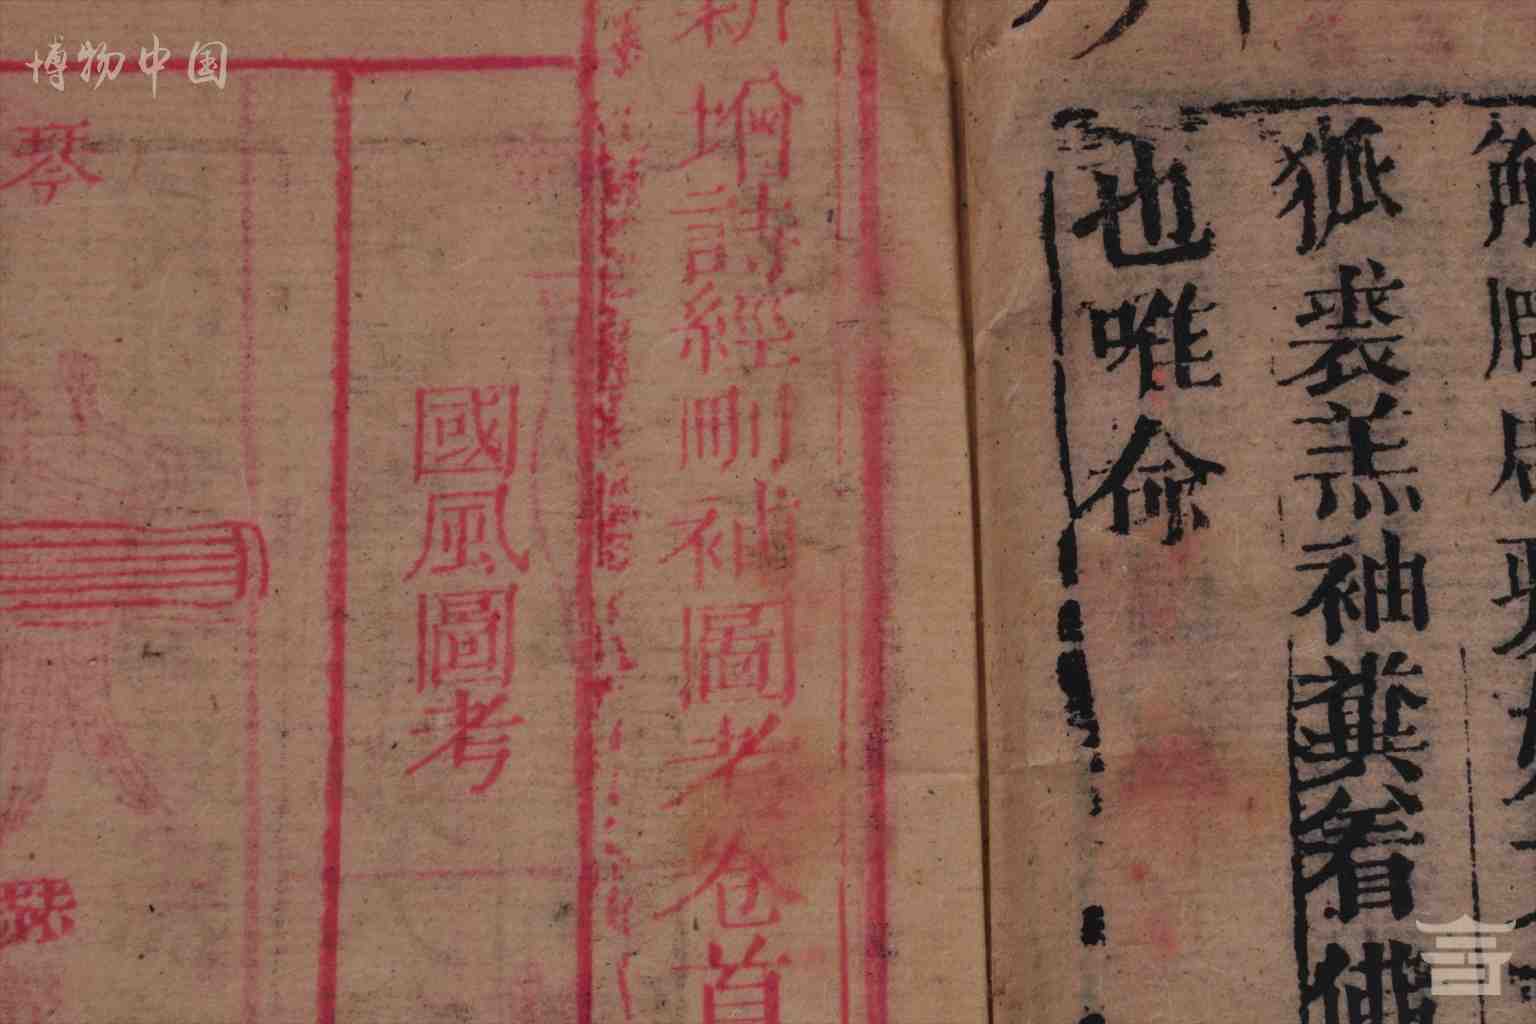 博物中国
狐裘羔袖糞着佛
也唯命
新增詩經刪補圖考卷首
國風圖考
琴